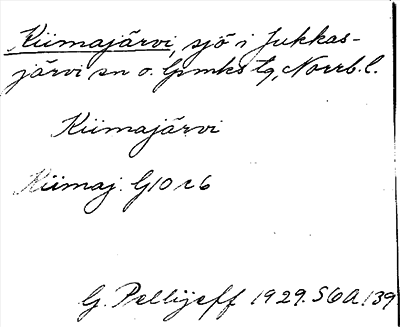 Kiimajärvi, sjö i Jukkas-
järvi sn o. lpmks tg, Norrb. l.
Kiimajärvi
Kiimaj. G10 r6
G. Pellijeff 1929. S6A. 139